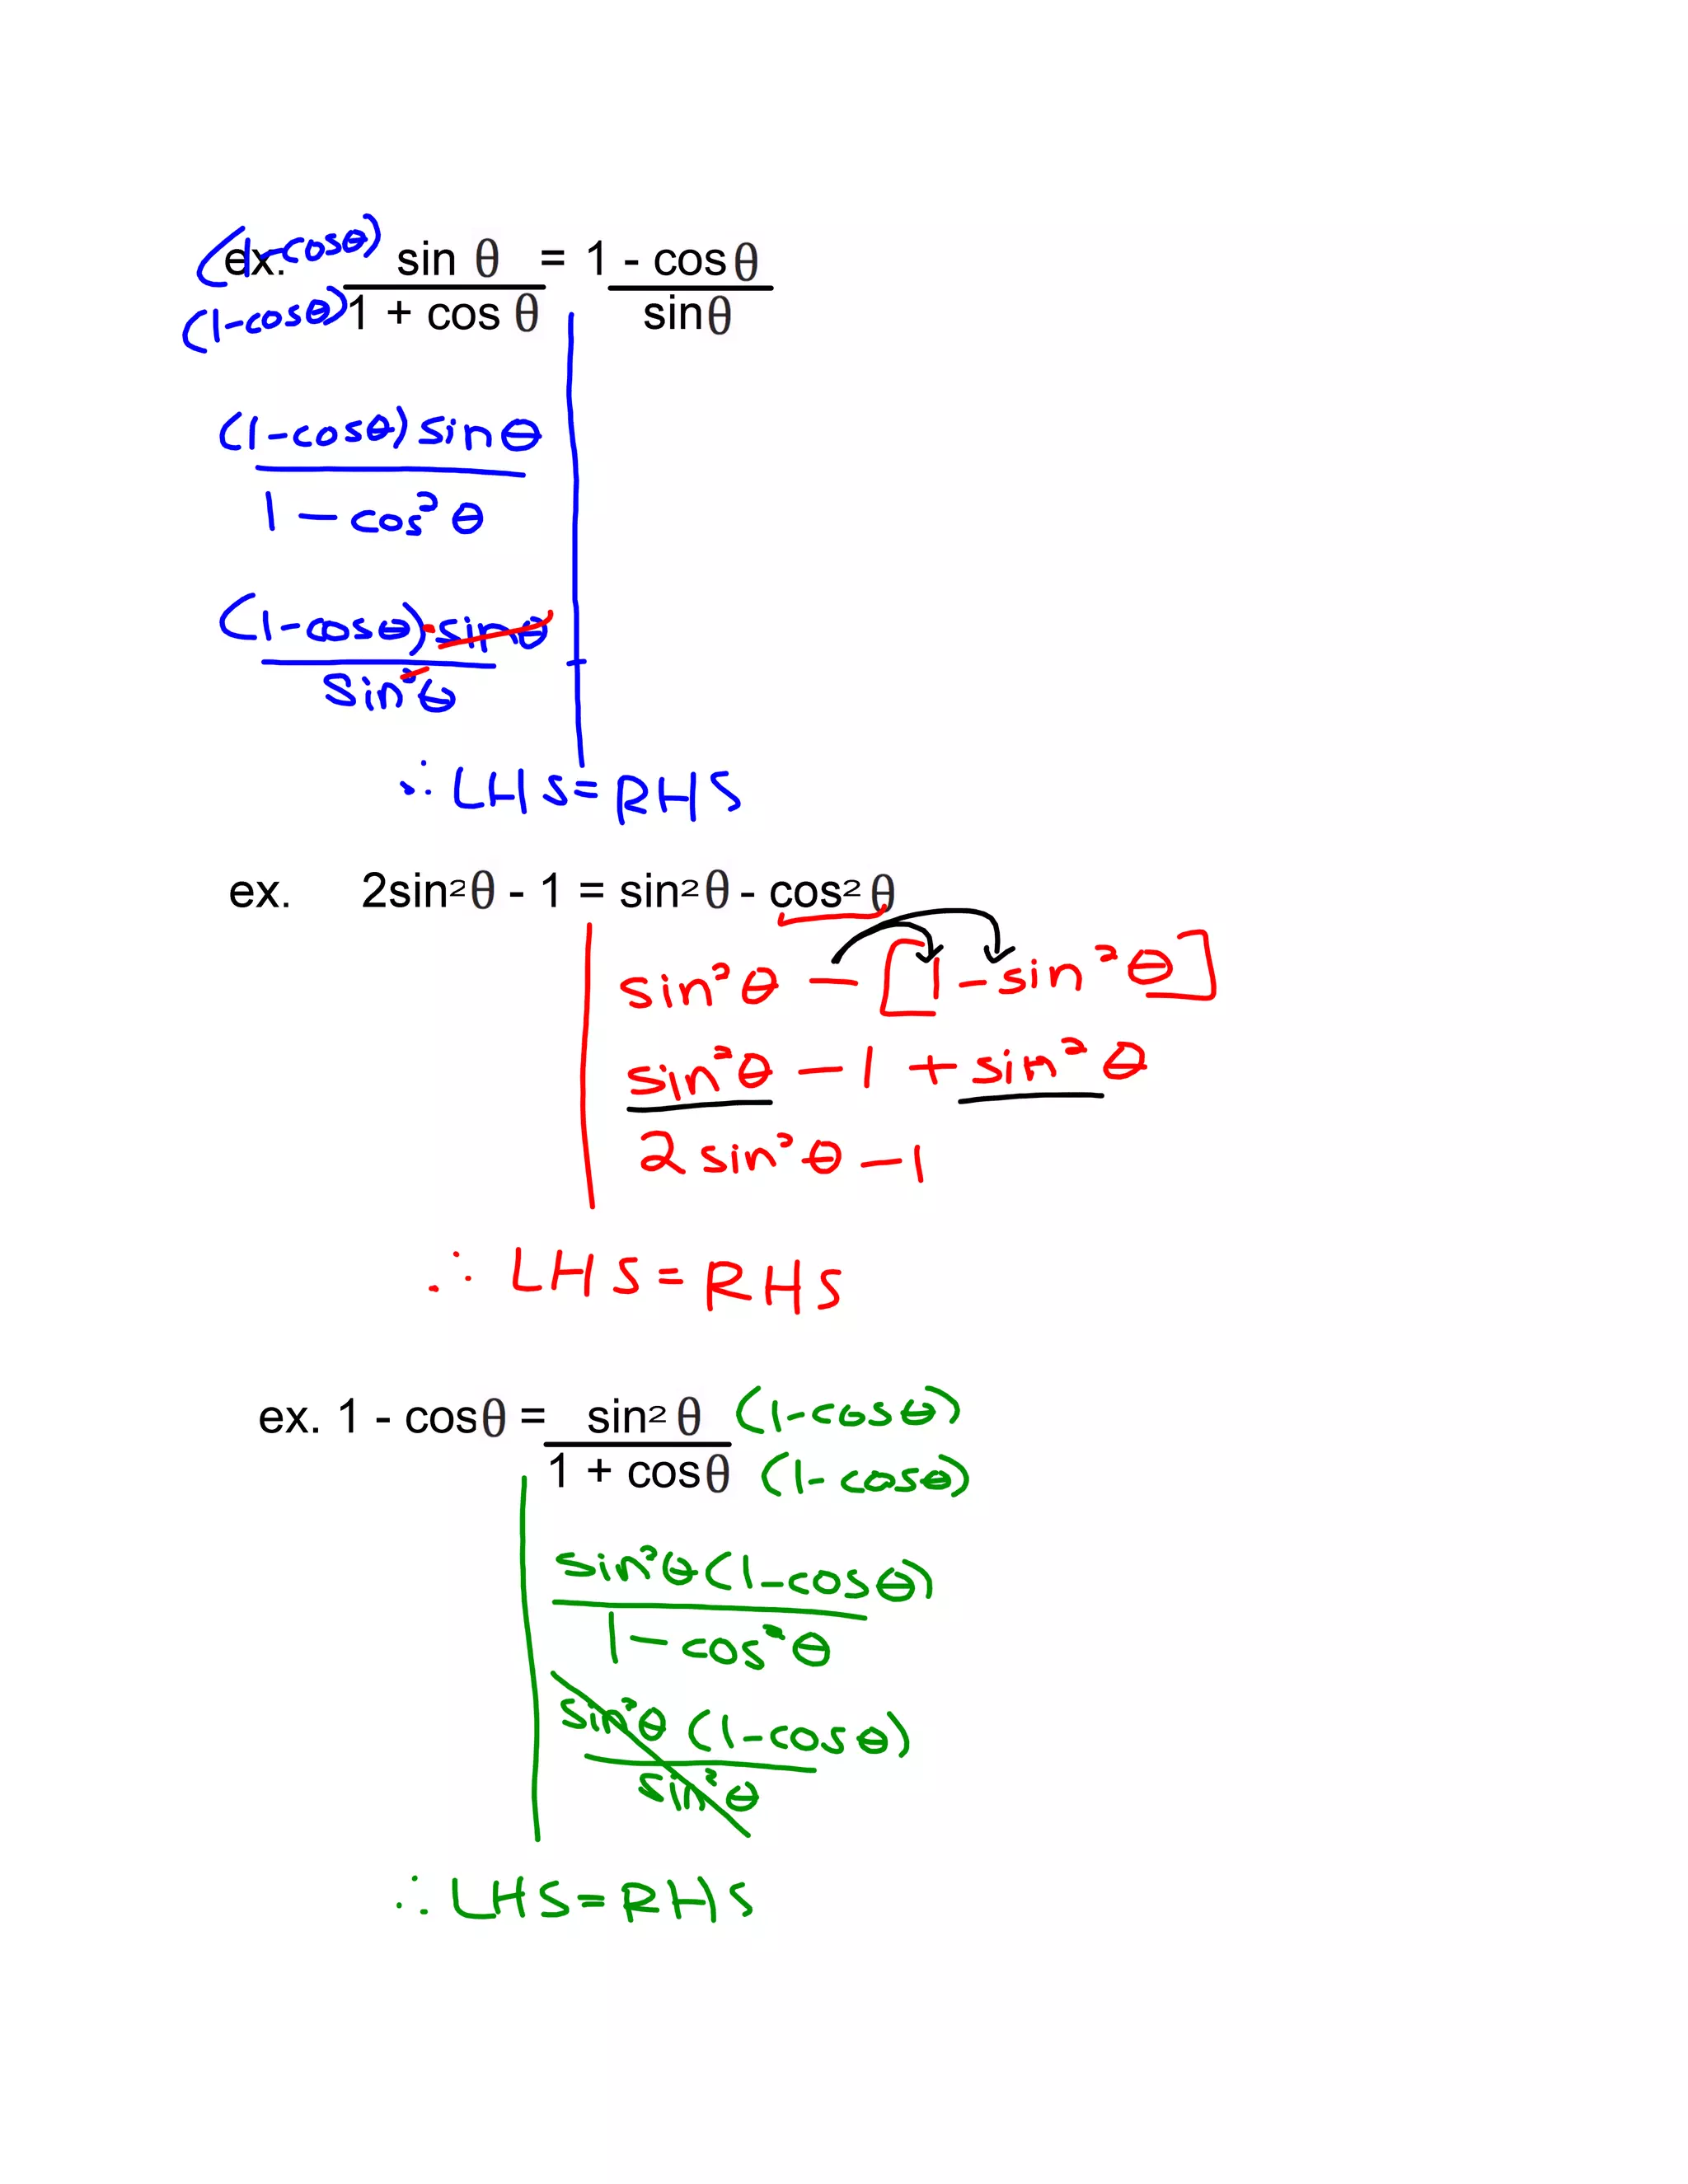 (1-cosθ) ex. sin θ = 1 - cosθ
(1-cosθ) 1 + cos θ sinθ
(1-cosθ) sin θ
1 - cos²θ
(1-cosθ)·sinθ
sin²θ
∴ LHS = RHS
ex. 2sin²θ - 1 = sin²θ - cos²θ
sin²θ - [1 - sin²θ]
sin²θ - 1 + sin²θ
2 sin²θ - 1
∴ LHS = RHS
ex. 1 - cosθ = sin²θ (1-cosθ)
1 + cosθ (1-cosθ)
sin²θ(1-cosθ)
1 - cos²θ
sin²θ (1-cosθ)
sin²θ
∴ LHS = RHS